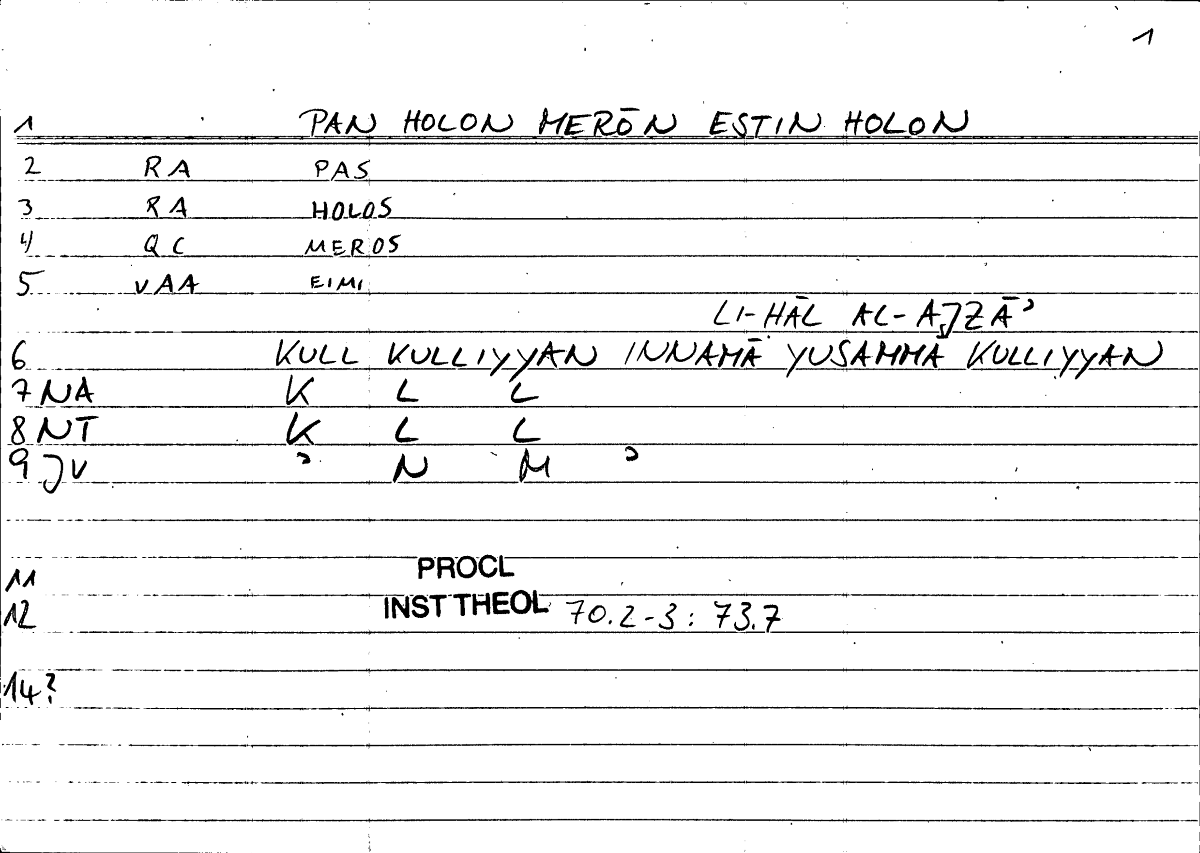 1
1 PAN HOLON MERŌN ESTIN HOLON
2 RA PAS
3 RA HOLOS
4 QC MEROS
5 vAA EIMI
LI-HĀL AL-AJZĀʾ
6 KULL KULLIYYAN INNAMĀ YUSAMMĀ KULLIYYAN
7 NA K L L
8 NT K L L
9 JV ʾ N M ʾ
11 PROCL
12 INST THEOL 70.2-3: 73.7
14?